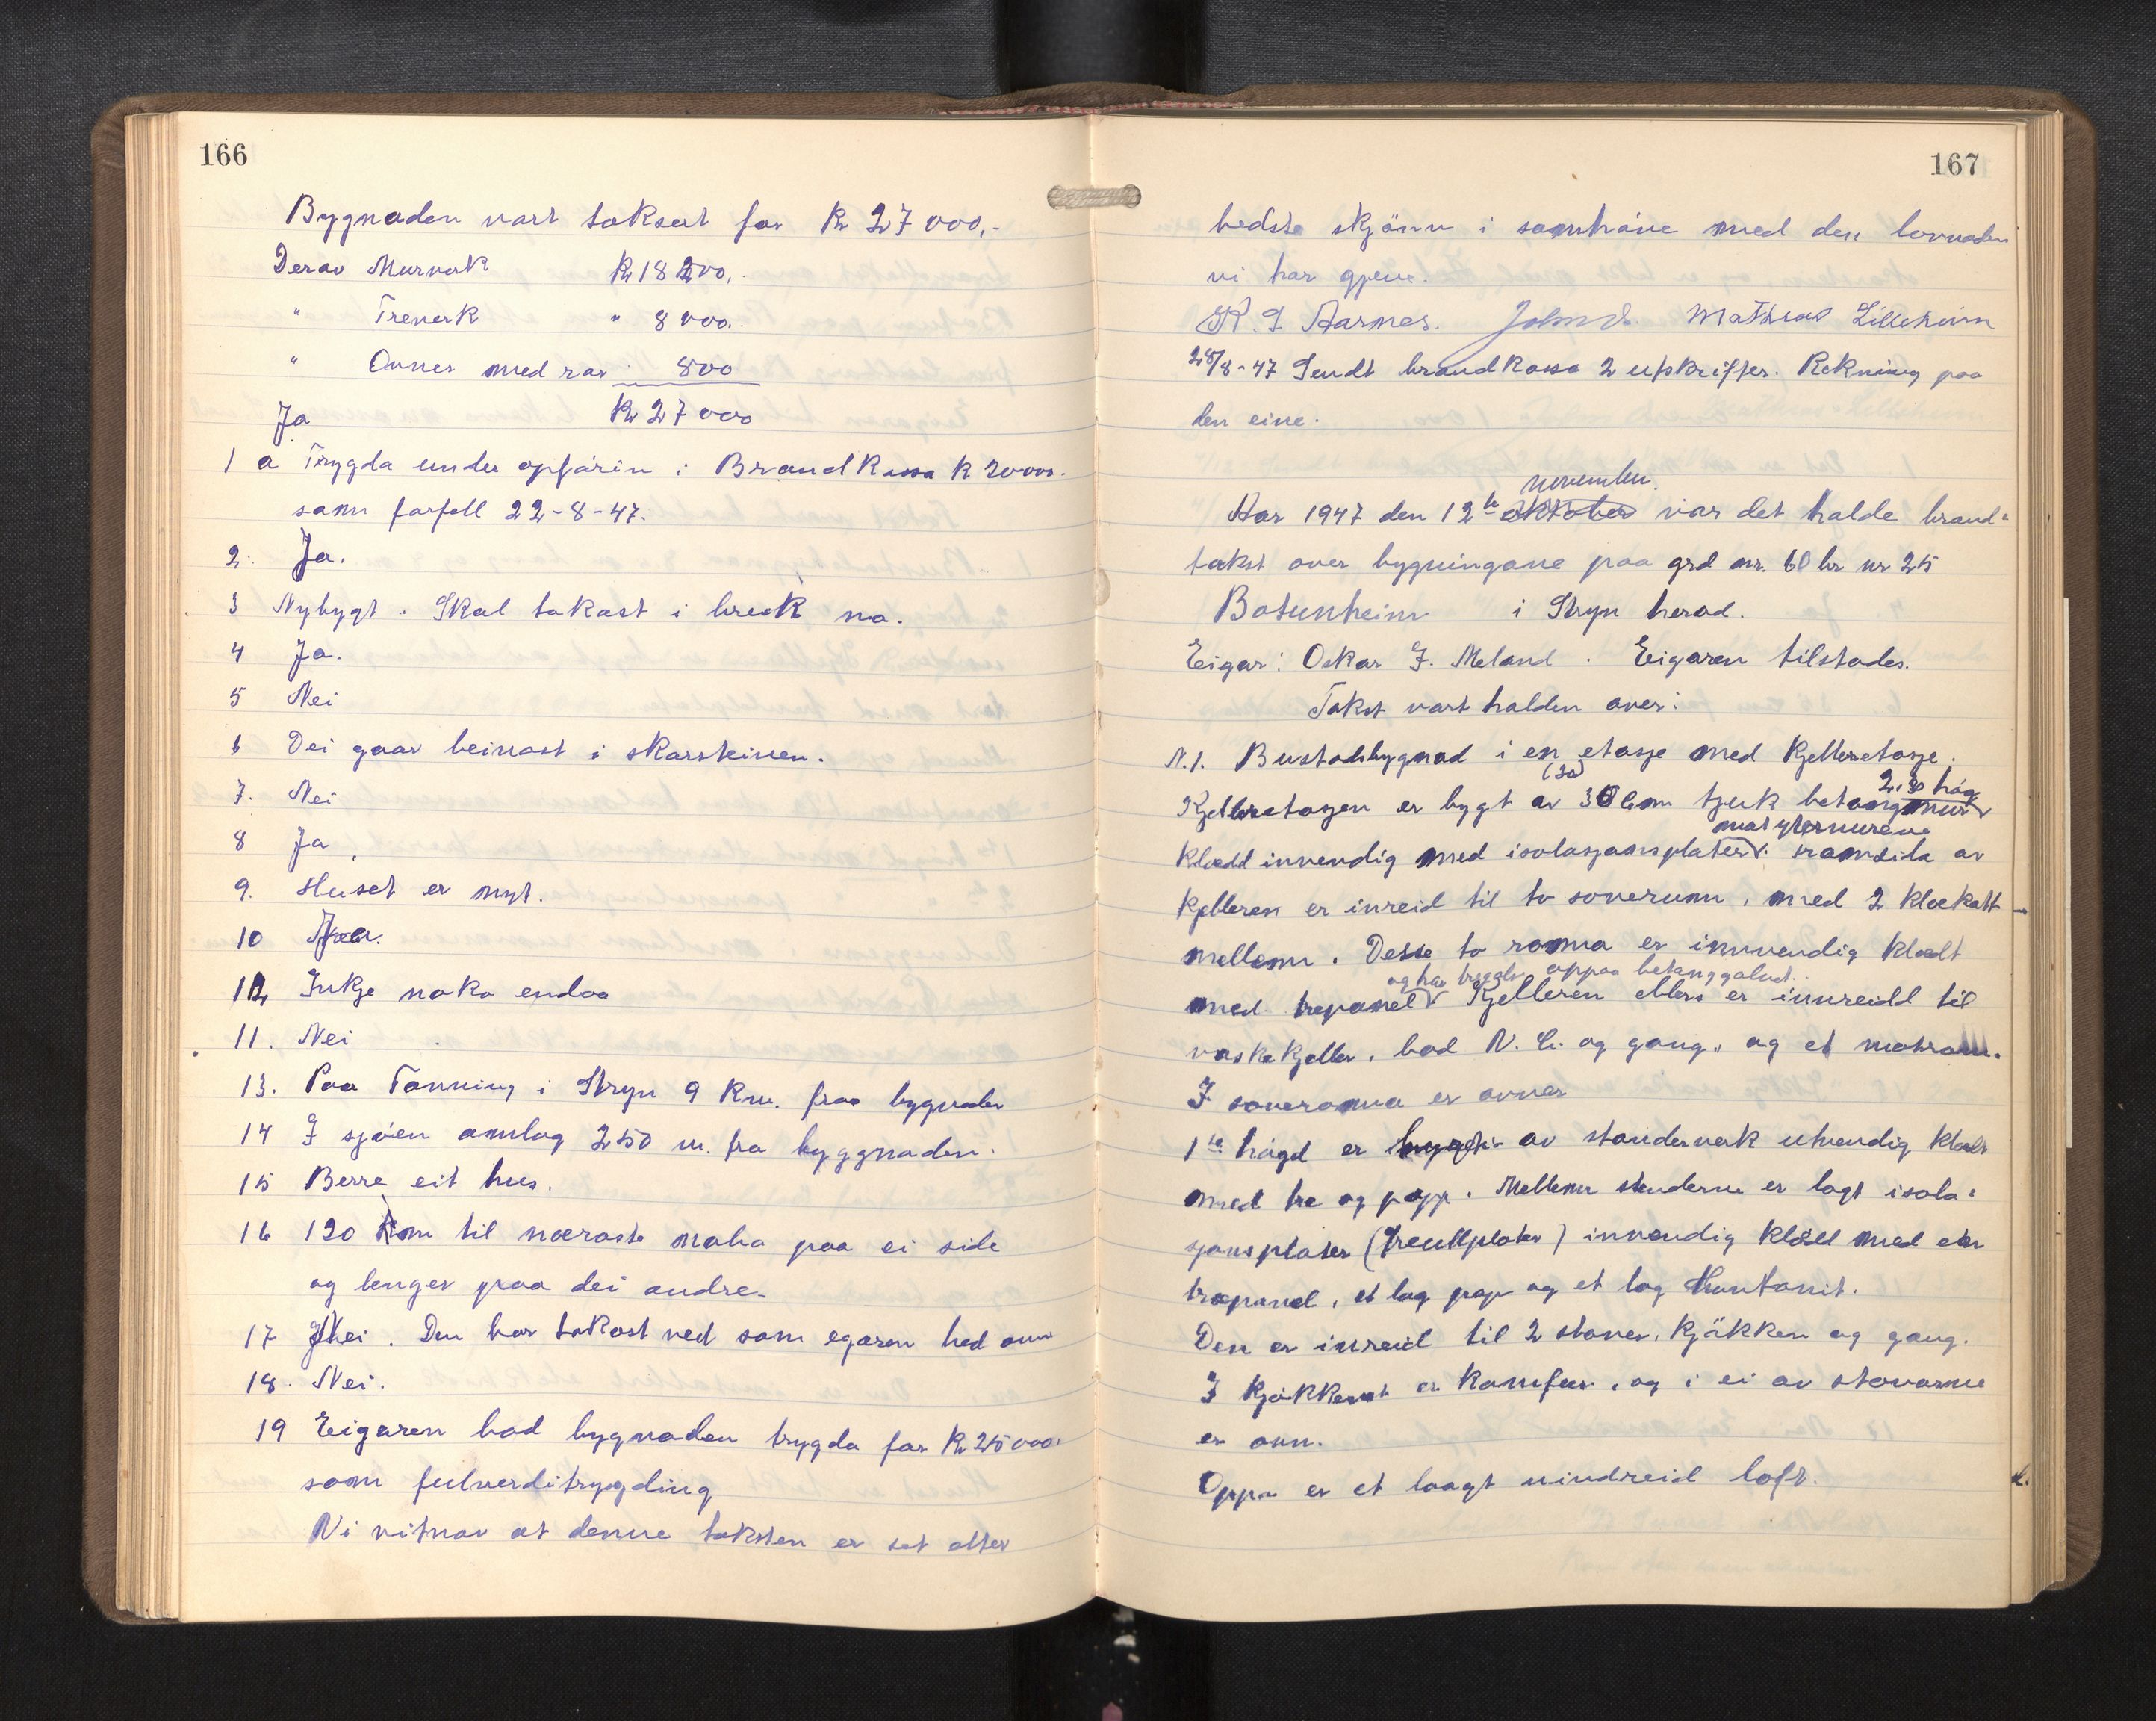 166
Bygnaden vart taksert for Kr 27 000,-
Derav Murverk Kr 18 200,-
" Treverk " 8 000.
" Ovner med rør 800
Kr 27 000
Ja
1 a Trygda under opføring i Brandkassa Kr 20000.
som forfell 22-8-47.
2. Ja.
3 Nybygt. Skal takast i bruk no.
4 Ja.
5 Nei
6 Dei gaar beinast i skorsteinen.
7. Nei
8 Ja.
9. Huset er nyt.
10 Ja.
12 Inkje noko endaa
11. Nei
13. Paa Tonning i Stryn 9 km. fraa bygnaden
14 I sjøen omlag 250 m. fra byggnaden.
15 Berre eit hus.
16 120 m til næraste naba paa ei side
og lenger paa dei andre.
17 Nei. Den har takost ved som egaren hed om
18. Nei.
19 Eigaren bad bygnaden trygda for Kr 25 000.
som fulverditrygding
Vi vitnar at denne taksten er set etter
167
bedste skjønn i samhøve med den lovnaden
vi har gjeve.
K. I Aarnes. Mathias Lilleheim
28/8-47 Sendt brandkassa 2 utskrifter. Rekning paa
den eine.
november.
Aar 1947 den 12te oktober var det halde brand=
takst over bygningane paa grd nr. 60 br nr 25
Botunheim i Stryn herad.
Eigar: Oskar J. Meland. Eigaren tilstades.
Takst vart halden over:
N.1. Bustadbygnad i en etasje med kjelleretasje.
(30) 2,30 høg
Kjelleretasjen er bygt av 30 cm tjuk betongmur
mot yttermurene
klædd innvendig med isolasjonsplater. Framsida av
kjelleren er inreid til to soverum, med 2 klækott
mellom. Desse to romma er innvendig klædt
og har tregolv oppaa betonggolvet.
med trepanel Kjelleren ellers er innreidd til
vaskekjeller, bad V. C. og gang, og et matrom.
I soveromma er ovner
1te høgd er bygt av standerverk utvendig klædt
med tre og papp. Mellom stenderne er lagt isola=
sjonsplater (Treullplater) innvendig klædd med ein
trepanel, et lag pap og et lag Huntonit.
Den er inreid til 2 stover, kjøkken og gang.
I kjøkkenet er komfur, og i ei av stovorne
er ovn.
Oppe er et laagt uindreid loft.